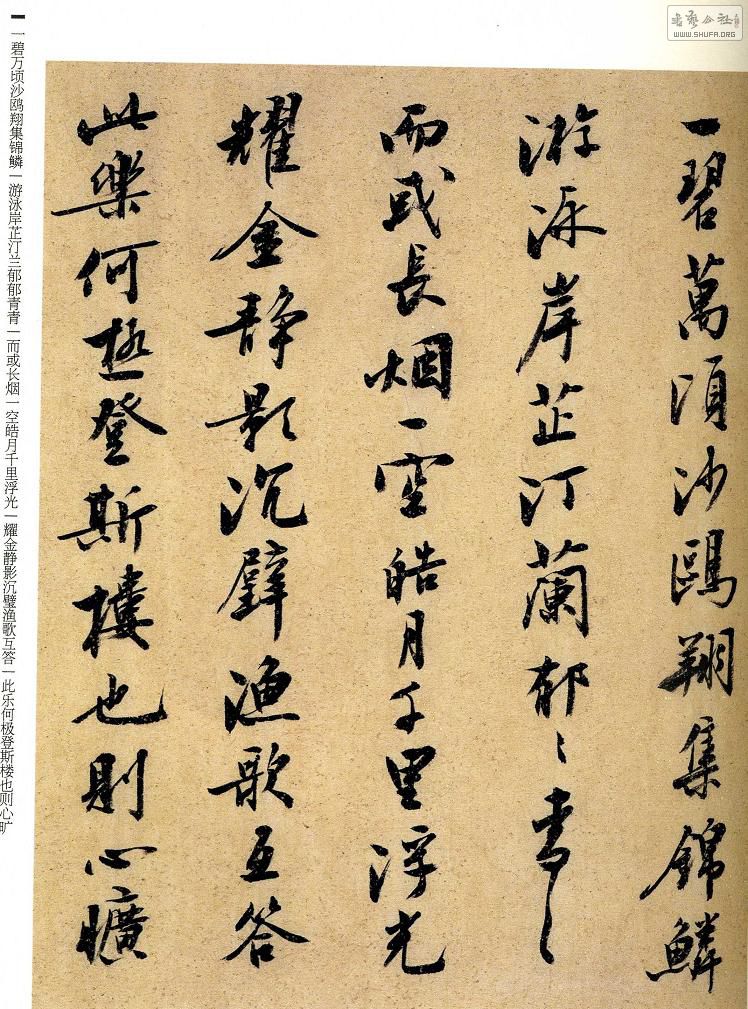 一碧萬頃沙鷗翔集錦鱗
游泳岸芷汀蘭郁〻青〻
而或長烟一空皓月千里浮光
耀金静影沉璧漁歌互答
此樂何極登斯樓也則心曠
一碧万顷沙鸥翔集锦鳞|游泳岸芷汀兰郁郁青青|而或长烟一空皓月千里浮光|耀金静影沉璧渔歌互答|此乐何极登斯楼也则心旷
WWW.SHUFA.ORG